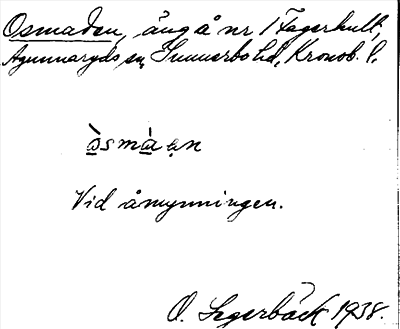 Osmaden, äng å nr 1 Fagerhult,
Agunnaryds sn, Sunnerbo hd, Kronob. l.
ò̱smá̱ạn
Vid åmynningen.
O. Segerbäck 1938.